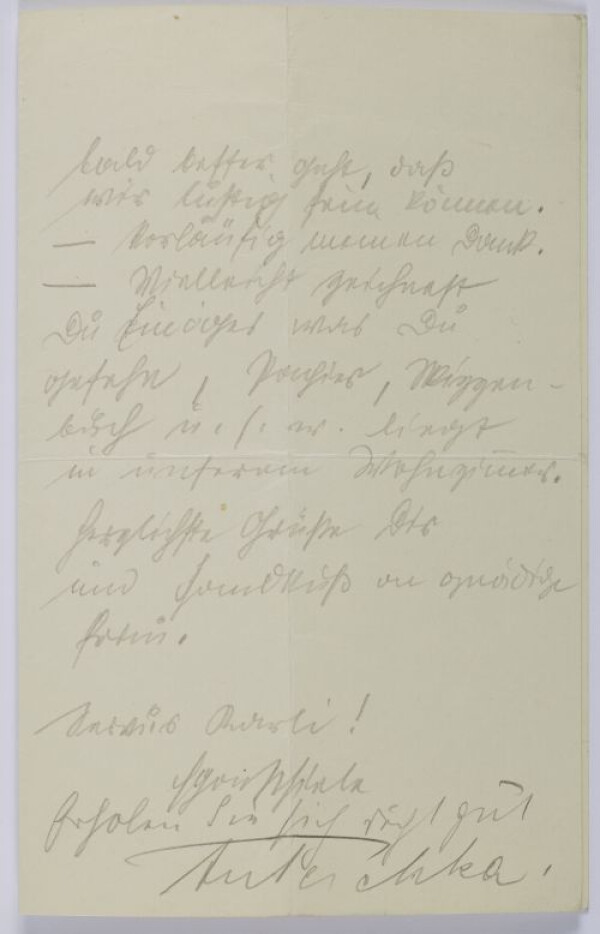 bald besser geht, daß
wir lustig sein können.
— Vorläufig meinen Dank.
— Vielleicht zeichnest
Du Einiges was Du
gesehn, Papier, Skizzen-
buch u. s. w. liegt
in unserem Wohnzimmer.
Herzlichste Grüße Dir
und Handkuß an gnädige
Frau.
Servus Karli!
Egon Schiele
Erholen Sie sich recht gut
Antschka.